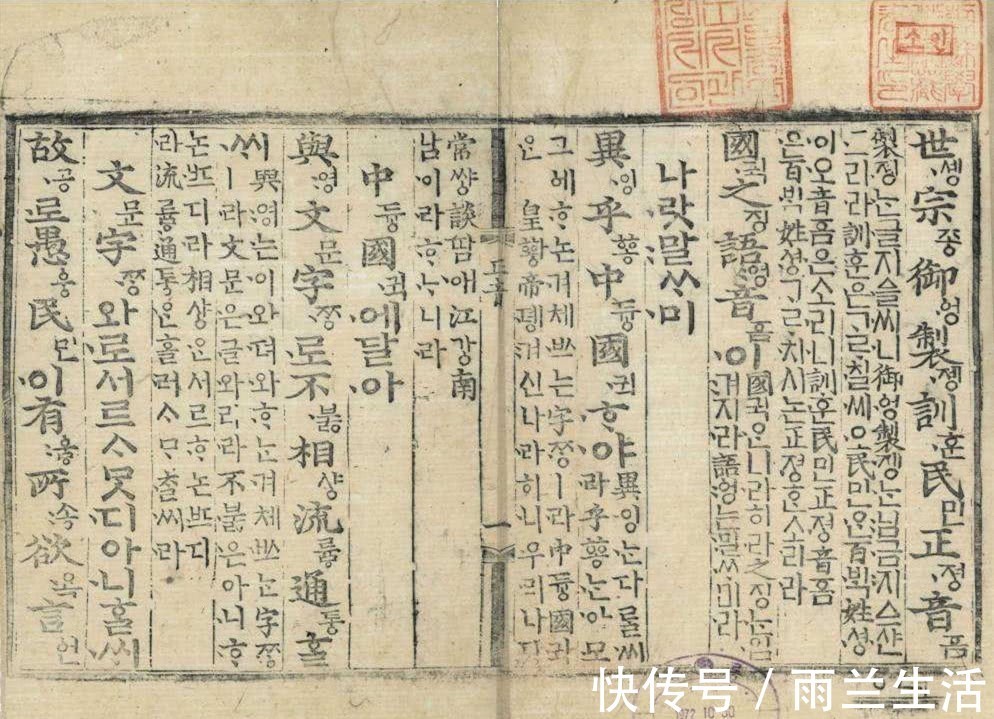 世솅宗조ᇰ御ᅌᅥᆼ製졩訓훈民민正져ᇰ音ᅙᅳᆷ
製졩ᄂᆞᆫ글지ᅀᅳᆯ씨니御ᅌᅥᆼ製졩ᄂᆞᆫ님금지ᅀᅳ샨
그리라訓훈은ᄀᆞᄅᆞ칠씨오民민ᄋᆞᆫ百ᄇᆡᆨ姓셔ᇰ
이오音ᅙᅳᆷ은소리니訓훈民민正져ᇰ音ᅙᅳᆷ
은百ᄇᆡᆨ姓셔ᇰᄀᆞᄅᆞ치시논正져ᇰᄒᆞᆫ소리라
國귁之징語ᅌᅥᆼ音ᅙᅳᆷ이國귁ᄋᆞᆫ나라히라之징ᄂᆞᆫ입
겨지라語ᅌᅥᆼ는말ᄊᆞ미라
나랏말ᄊᆞ미
異잉乎ᅘᅩᆼ中듀ᇰ國귁ᄒᆞ야異잉ᄂᆞᆫ다ᄅᆞᆯ씨
라乎ᅘᅩᆼᄂᆞᆫ아모
그ᅌᅦᄒᆞ논겨체ᄡᅳ는字ᄍᆞᆼㅣ라中듀ᇰ國귁
ᄋᆞᆫ皇ᅘᅪᇰ帝뎽겨신나라히니우리나랏
正音 一
常쌰ᇰ談땀애江가ᇰ南
남이라ᄒᆞᄂᆞ니라
中듀ᇰ國귁에달아
與영文문字ᄍᆞᆼ로不부ᇙ相샤ᇰ流류ᇢ通토ᇰᄒᆞᆯ
씨與영는이와뎌와ᄒᆞᄂᆞᆫ겨체ᄡᅳ는字ᄍᆞᆼ
ㅣ라文문은글와리라不부ᇙ은아니ᄒᆞ
논ᄠᅳ디라相샤ᇰᄋᆞᆫ서르ᄒᆞ논ᄠᅳ디
라流류ᇢ通토ᇰᄋᆞᆫ흘러ᄉᆞᄆᆞᄎᆞᆯ씨라
文문字ᄍᆞᆼ와로서르ᄉᆞᄆᆞᆺ디아니ᄒᆞᆯᄊᆡ
故공로愚ᅌᅮᆼ民민이有우ᇢ所송欲욕言ᅌᅥᆫ
소인
1972.10.30
快传号/雨兰生活